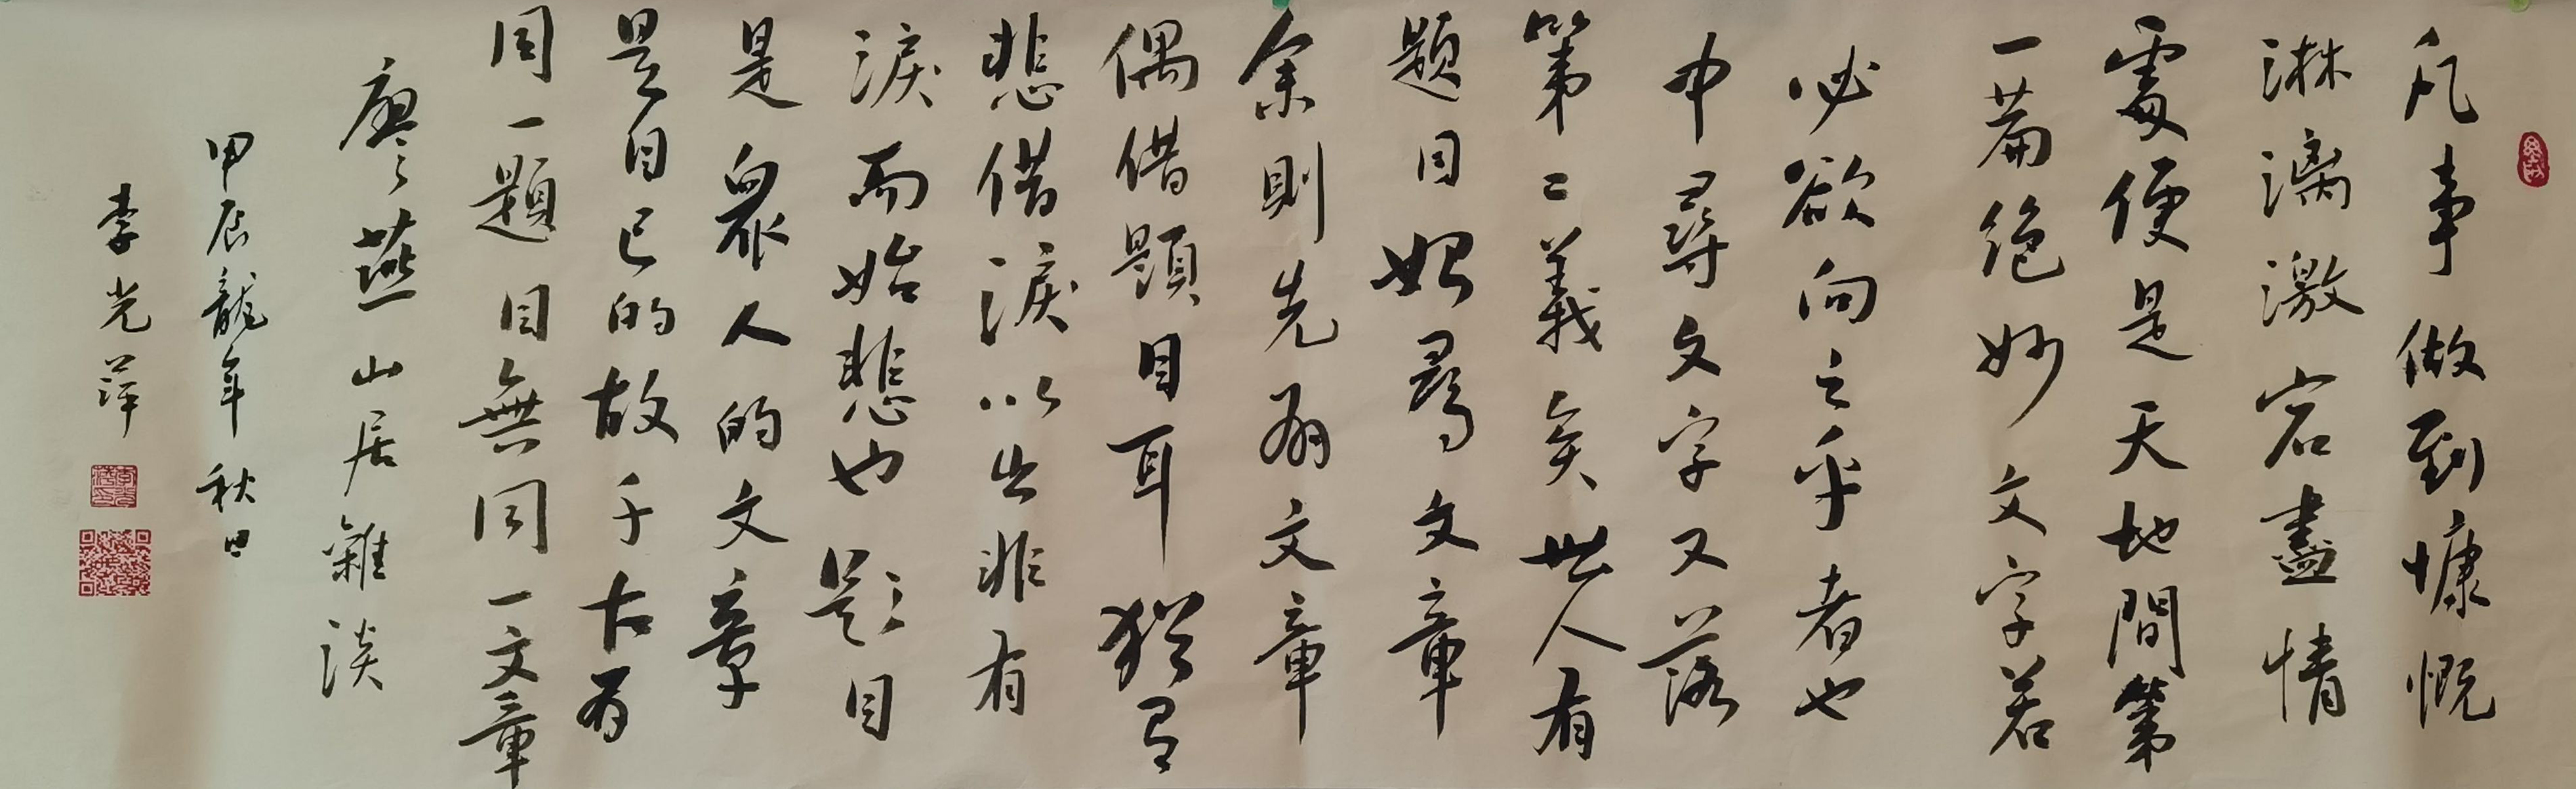 凡事做到慷慨
淋漓激宕盡情
處便是天地間第
一篇絕妙文字若
必欲向之乎者也
中尋文字又落
第二義矣世人有
題目始尋文章
余則先有文章
偶借題目耳猶有
悲借淚以出非有
淚而始悲也題目
是眾人的文章
是自己的故千古有
同一題目無同一文章
廖燕山居雜談
甲辰龍年秋日
李光萍